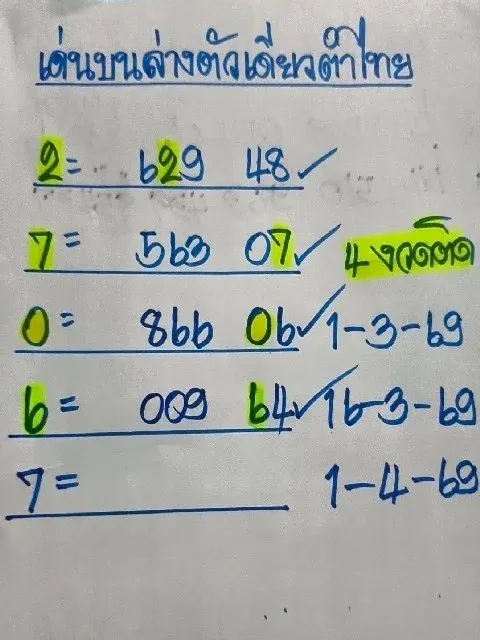 เด่นบนล่างตัวเดียวต๊ำไทย
2 = 629 48 ✓
7 = 563 07 ✓ 4 งวดติด
0 = 866 06 ✓ 1-3-69
6 = 009 64 ✓ 16-3-69
7 = 1-4-69